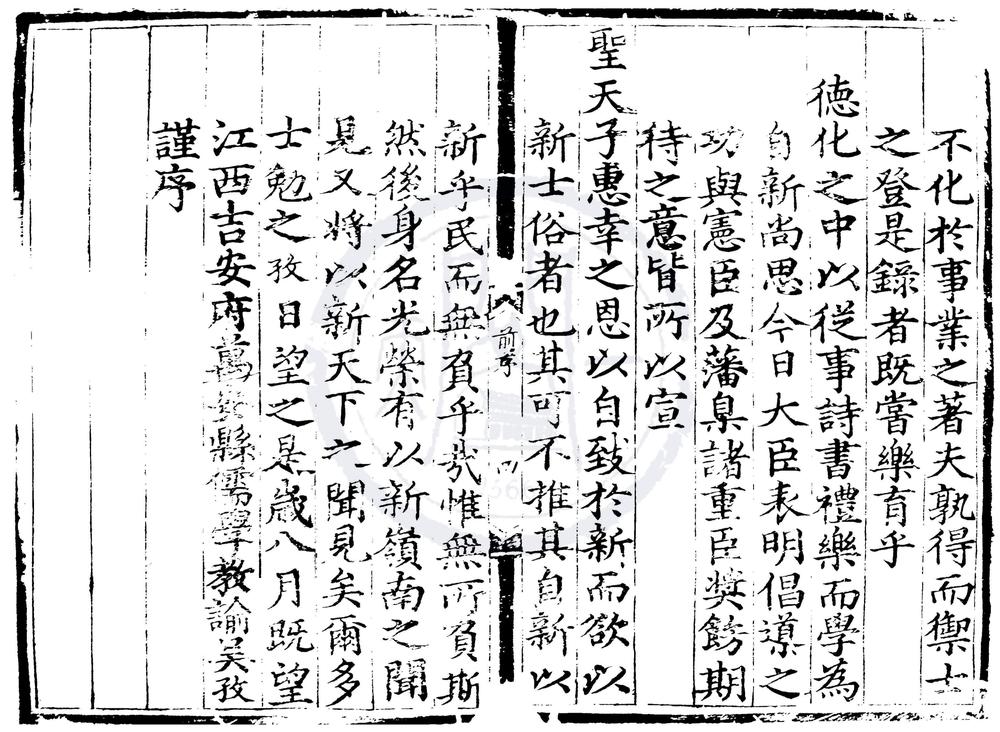 不化於事業之著夫孰得而禦士
之登是録者既嘗樂育乎
德化之中以從事詩書禮樂而學為
自新尚思今日大臣表明倡導之
功與憲臣及藩臬諸重臣奬飭期
待之意皆所以宣
聖天子惠幸之恩以自致於新而欲以
新士俗者也其可不推其自新以
前序
四
新乎民而無負乎哉惟無所負斯
然後身名光榮有以新嶺南之聞
見又將以新天下之聞見矣爾多
士勉之孜日望之是歲八月既望
江西吉安府萬安縣儒學教諭吴孜
謹序